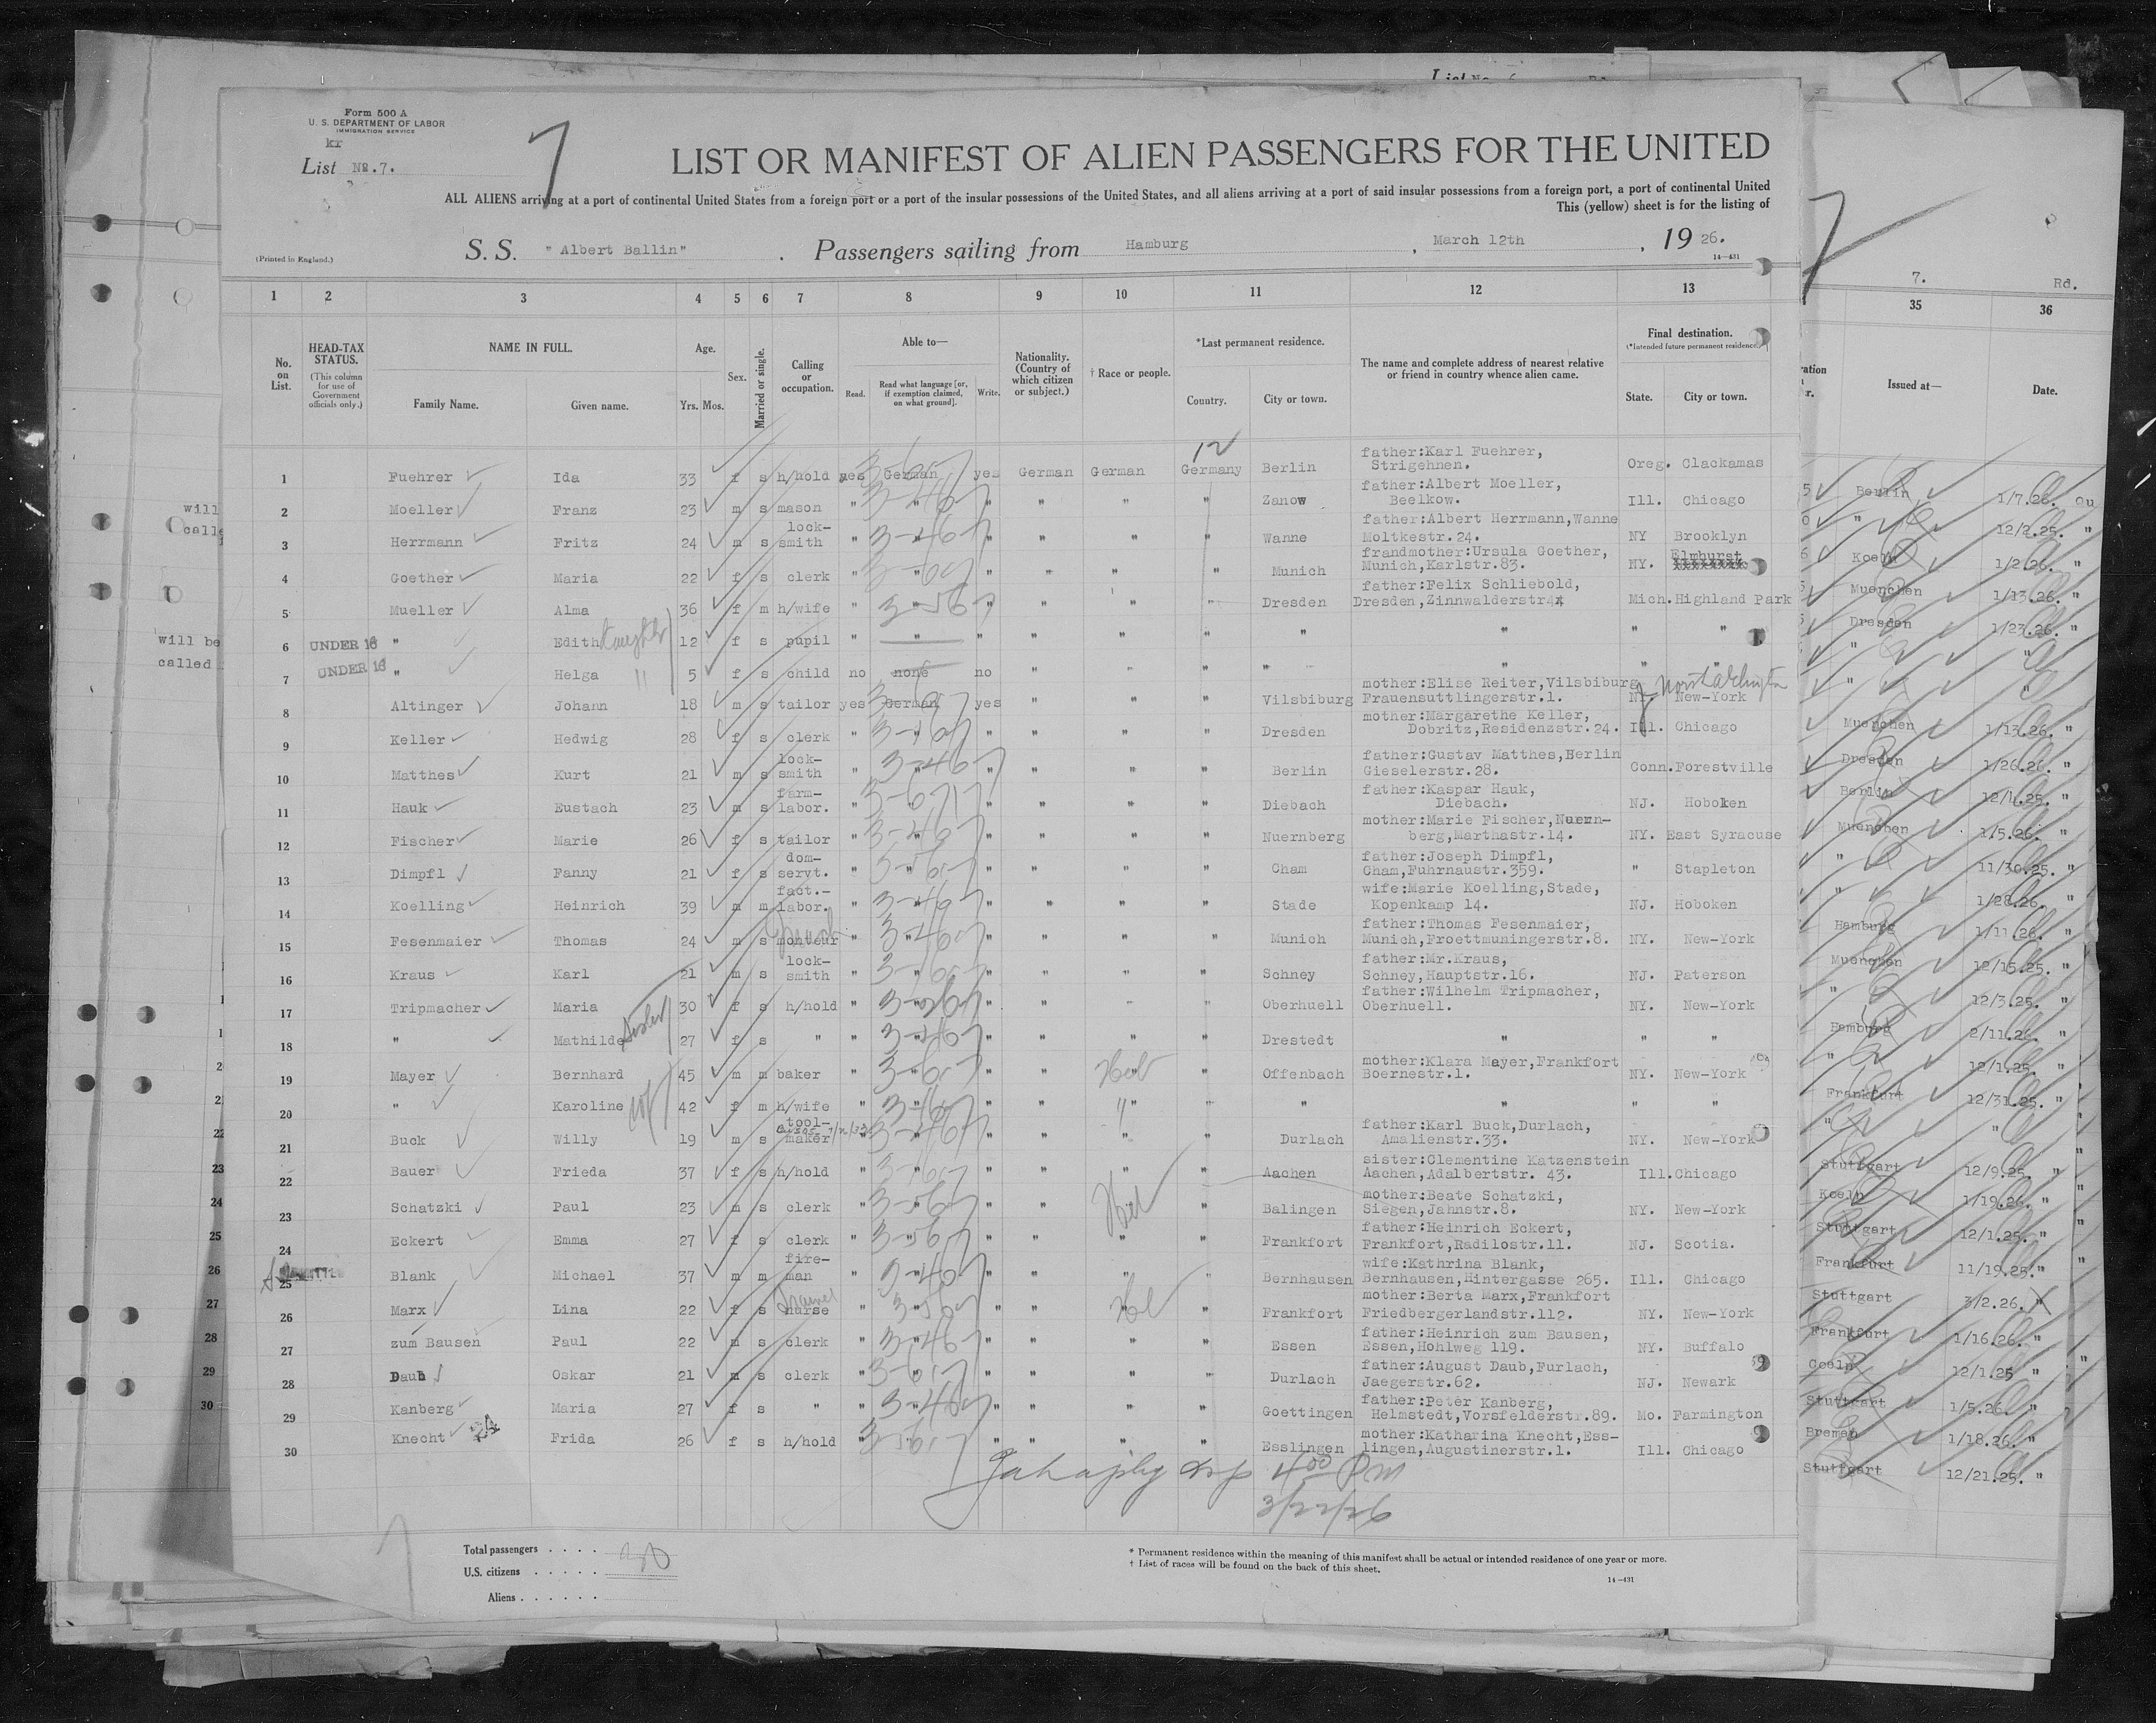 Form 500 A
U. S. DEPARTMENT OF LABOR
IMMIGRATION SERVICE
kr
List No. 7.
7
LIST OR MANIFEST OF ALIEN PASSENGERS FOR THE UNITED
ALL ALIENS arriving at a port of continental United States from a foreign port or a port of the insular possessions of the United States, and all aliens arriving at a port of said insular possessions from a foreign port, a port of continental United
This (yellow) sheet is for the listing of
(Printed in England.)
S. S. "Albert Ballin". Passengers sailing from Hamburg, March 12th, 19 26.
14—431
7. Rd.
1 2 3 4 5 6 7 8 9 10 11 12 13 35 36
No. on List.
HEAD-TAX STATUS.
(This column for use of Government officials only.)
NAME IN FULL.
Family Name. Given name.
Age.
Yrs. Mos.
Sex.
Married or single.
Calling or occupation.
Able to—
Read.
Read what language [or, if exemption claimed, on what ground].
Write.
Nationality. (Country of which citizen or subject.)
† Race or people.
*Last permanent residence.
Country. City or town.
The name and complete address of nearest relative or friend in country whence alien came.
Final destination.
(*Intended future permanent residence.)
State. City or town.
Issued at— Date.
12
1 Fuehrer Ida 33 f s h/hold yes German yes German German Germany Berlin father:Karl Fuehrer, Strigehnen. Oreg. Clackamas Berlin 1/7.26.
2 Moeller Franz 23 m s mason " " " " " " Zanow father:Albert Moeller, Beelkow. Ill. Chicago " 12/2.25. "
3 Herrmann Fritz 24 m s lock-smith " " " " " " Wanne father:Albert Herrmann,Wanne Moltkestr.24. NY Brooklyn Koeln 1/2.26. "
4 Goether Maria 22 f s clerk " " " " " " Munich frandmother:Ursula Goether, Munich,Karlstr.83. NY. Elmhurst Muenchen 1/13.26. "
5 Mueller Alma 36 f m h/wife " " " " " " Dresden father:Felix Schliebold, Dresden,Zinnwalderstr.44 Mich. Highland Park Dresden 1/23.26. "
6 UNDER 16 " Edith daughter 12 f s pupil " " " " " " " " " " " "
7 UNDER 16 " Helga " 5 f s child no none no " " " " " " " " "
8 Altinger Johann 18 m s tailor yes German yes " " " Vilsbiburg mother:Elise Reiter,Vilsbiburg Frauensuttlingerstr.1. NY. New-York North Arlington Muenchen 1/13.26. "
9 Keller Hedwig 28 f s clerk " " " " " " Dresden mother:Margarethe Keller, Dobritz,Residenzstr.24. Ill. Chicago Dresden 1/26.26. "
10 Matthes Kurt 21 m s lock-smith " " " " " " Berlin father:Gustav Matthes,Berlin Gieselerstr.28. Conn. Forestville Berlin 12/1.25. "
11 Hauk Eustach 23 m s farm-labor. " " " " " " Diebach father:Kaspar Hauk, Diebach. NJ. Hoboken Muenchen 1/5.26. "
12 Fischer Marie 26 f s tailor " " " " " " Nuernberg mother:Marie Fischer,Nuernberg,Marthastr.14. NY. East Syracuse " 11/30.25. "
13 Dimpfl Fanny 21 f s dom-servt. " " " " " " Cham father:Joseph Dimpfl, Cham,Fuhrnaustr.359. " Stapleton " 1/28.26. "
14 Koelling Heinrich 39 m m fact.-labor. " " " " " " Stade wife:Marie Koelling,Stade, Kopenkamp 14. NJ. Hoboken Hamburg 1/11.26. "
15 Fesenmaier Thomas 24 m s monteur " " " " " " Munich father:Thomas Fesenmaier, Munich,Froettmuningerstr.8. NY. New-York Muenchen 12/15.25. "
16 Kraus Karl 21 m s lock-smith " " " " " " Schney father:Mr.Kraus, Schney,Hauptstr.16. NJ. Paterson " 12/3.25. "
17 Tripmacher Maria 30 f s h/hold " " " " " " Oberhuell father:Wilhelm Tripmacher, Oberhuell. NY. New-York Hamburg 2/11.26. "
18 " Mathilde sister 27 f s " " " " " " " Drestedt " " " " 12/1.25. "
19 Mayer Bernhard 45 m m baker " " " " Heb " Offenbach mother:Klara Mayer,Frankfort Boernestr.1. NY. New-York Frankfurt 12/31.25. "
20 " Karoline wf 42 f m h/wife " " " " " " " " " " " "
21 Buck Willy 19 m s tool-maker " " " " " " Durlach father:Karl Buck,Durlach, Amalienstr.33. NY. New-York Stuttgart 12/9.25. "
22 Bauer Frieda 37 f s h/hold " " " " " " Aachen sister:Clementine Katzenstein Aachen,Adalbertstr. 43. Ill. Chicago Koeln 1/19.26. "
23 Schatzki Paul 23 m s clerk " " " " Heb " Balingen mother:Beate Schatzki, Siegen,Jahnstr.8. NY. New-York Stuttgart 12/1.25. "
24 Eckert Emma 27 f s clerk " " " " " " Frankfort father:Heinrich Eckert, Frankfort,Radilostr.11. NJ. Scotia. Frankfurt 11/19.25. "
25 Blank Michael 37 m m fire-man " " " " " " Bernhausen wife:Kathrina Blank, Bernhausen,Hintergasse 265. Ill. Chicago Stuttgart 3/2.26. "
26 Marx Lina 22 f s nurse " " " " Heb " Frankfort mother:Berta Marx,Frankfort Friedbergerlandstr.112. NY. New-York Frankfurt 1/16.26. "
27 zum Bausen Paul 22 m s clerk " " " " " " Essen father:Heinrich zum Bausen, Essen,Hohlweg 119. NY. Buffalo Coeln 12/1.25 "
28 Daub Oskar 21 m s clerk " " " " " " Durlach father:August Daub,Furlach, Jaegerstr.62. NJ. Newark Stuttgart 1/5.26. "
29 Kanberg Maria 27 f s " " " " " " " Goettingen father:Peter Kanberg, Helmstedt,Vorsfelderstr.89. Mo. Farmington Bremen 1/18.26. "
30 Knecht Frida 26 f s h/hold " " " " " " Esslingen mother:Katharina Knecht,Esslingen,Augustinerstr.1. Ill. Chicago Stuttgart 12/21.25. "
4 00 PM
3/22/26
Total passengers . . . . 30
U.S. citizens . . . . .
Aliens . . . . . .
* Permanent residence within the meaning of this manifest shall be actual or intended residence of one year or more.
† List of races will be found on the back of this sheet.
14—431